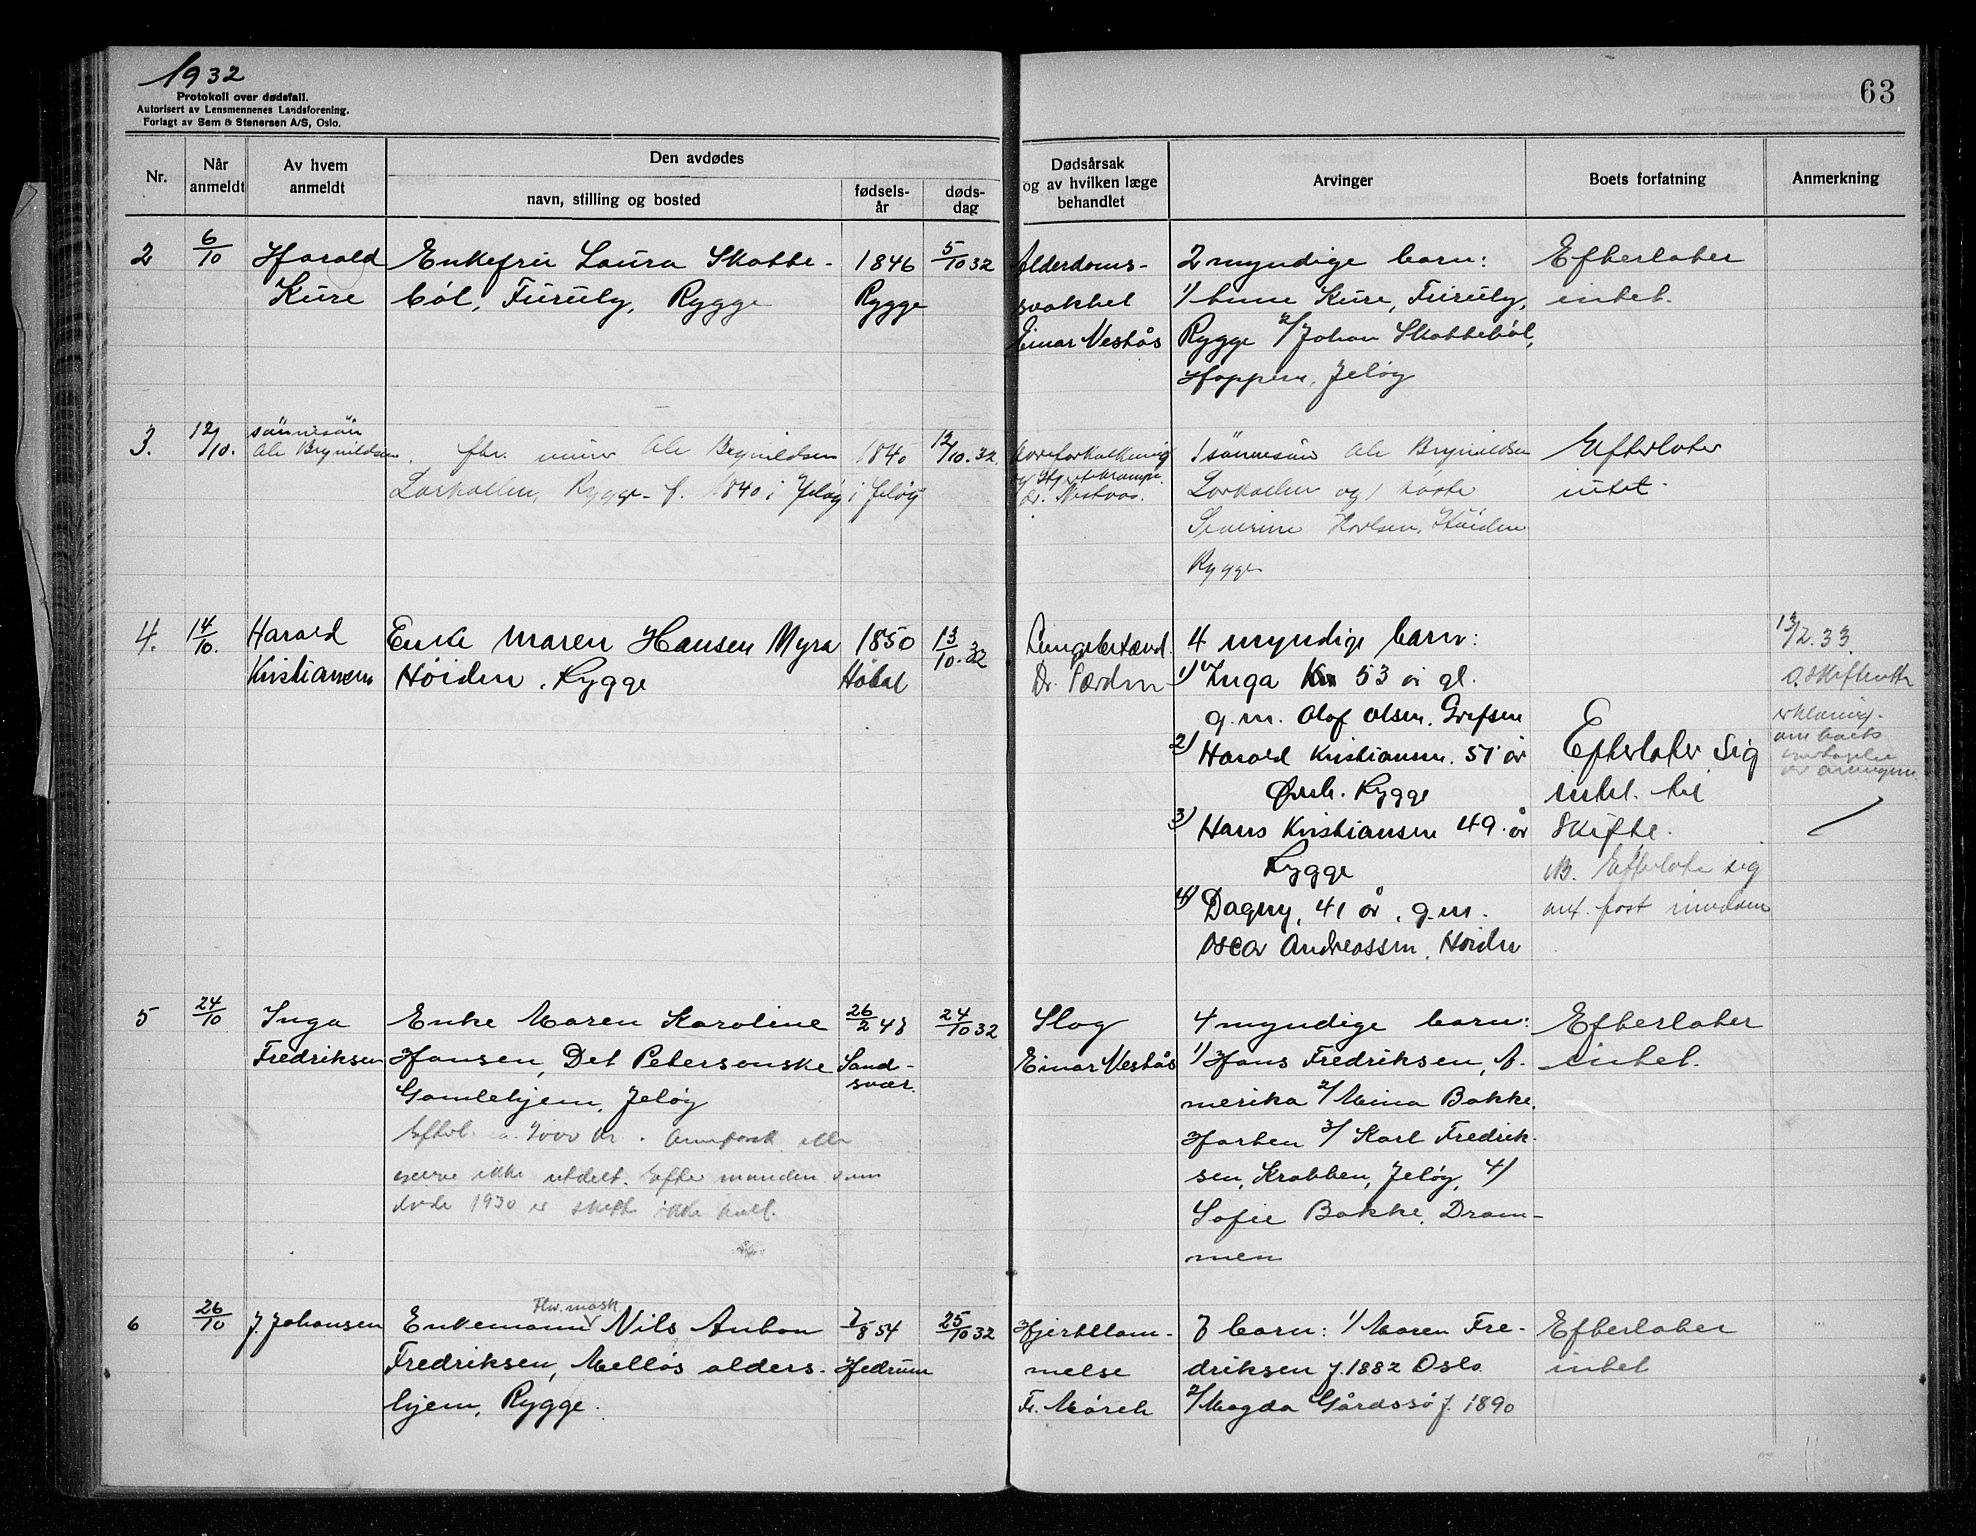 1932
Protokoll over dødsfall.
Autorisert av Lensmennenes Landsforening.
Forlagt av Sem & Stenersen A/S, Oslo.
63
Nr.
Når anmeldt
Av hvem anmeldt
Den avdødes
navn, stilling og bosted
fødsels-år
døds-dag
Dødsårsak og av hvilken læge behandlet
Arvinger
Boets forfatning
Anmerkning
2
6/10
Harald
Kure
Enkefru Laura Skatte-
bøl, Furuly, Rygge
1846
Rygge
5/10 32
Alderdoms-
svakhet
Einar Nestås
2 myndige barn:
1/ Kure, Furuly,
Rygge 2/ Johan Skattebøl,
Hoppern, Jeløy
Efterlater
intet.
3.
12/10.
sönnesön
Ole Brynildsen
fhv. murer Ole Brynildsen
Larkollen, Rygge f. 1840 i Jeløy
1840
i Jeløy
12/10. 32
Aareforkalkning
dr. Nestaas.
1 sönnesön Ole Brynildsen
Larkollen og 1
Severine Höiden
Rygge
Efterlater
intet.
4.
14/10.
Harald
Kristiansen
Enke Maren Hansen Myra
Höiden, Rygge
1850
Håbøl
13/10. 32
Lungebetænd.
Dr.
4 myndige barn:
1) Inga 53 år gl.
g.m. Olaf Olsen. Grefsen
2) Harald Kristiansen. 51 år
Rygge
3) Hans Kristiansen 49 år
Rygge
4) Dagny, 41 år, g.m.
Oscar Andreassen, Höiden
Efterlater sig
intet til
skifte.
NB. Efterlate sig
13/2. 33.
erklæring.
om boets
overtagelse
av arvingene
5
24/10
Inga
Fredriksen
Enke Maren Karoline
Hansen, Det Petersonske
Gamlehjem, Jeløy
ikke utdelt. Efter manden som
døde 1930 er skift ikke holt.
26/2 48
Sand-
svær.
24/10 32
Slag
Einar Nestås
4 myndige barn:
1/ Hans Fredriksen, A-
merika 2/ Mina Bakke,
Horten 3/ Karl Fredrik-
sen, Krabben, Jeløy, 4/
Sofie Bakke, Dram-
men
Efterlater
intet.
6
26/10
J. Johansen
Fhv. mask.
Enkemann Nils Anton
Fredriksen, Melløs alders-
hjem, Rygge.
7/8 54
Hedrum
25/10 32
Hjertelam-
melse
Fr. Mörch
7 barn: 1/ Maren Fre-
driksen f. 1882 Oslo
2/ Magda Gårdssø f. 1890
Efterlater
intet